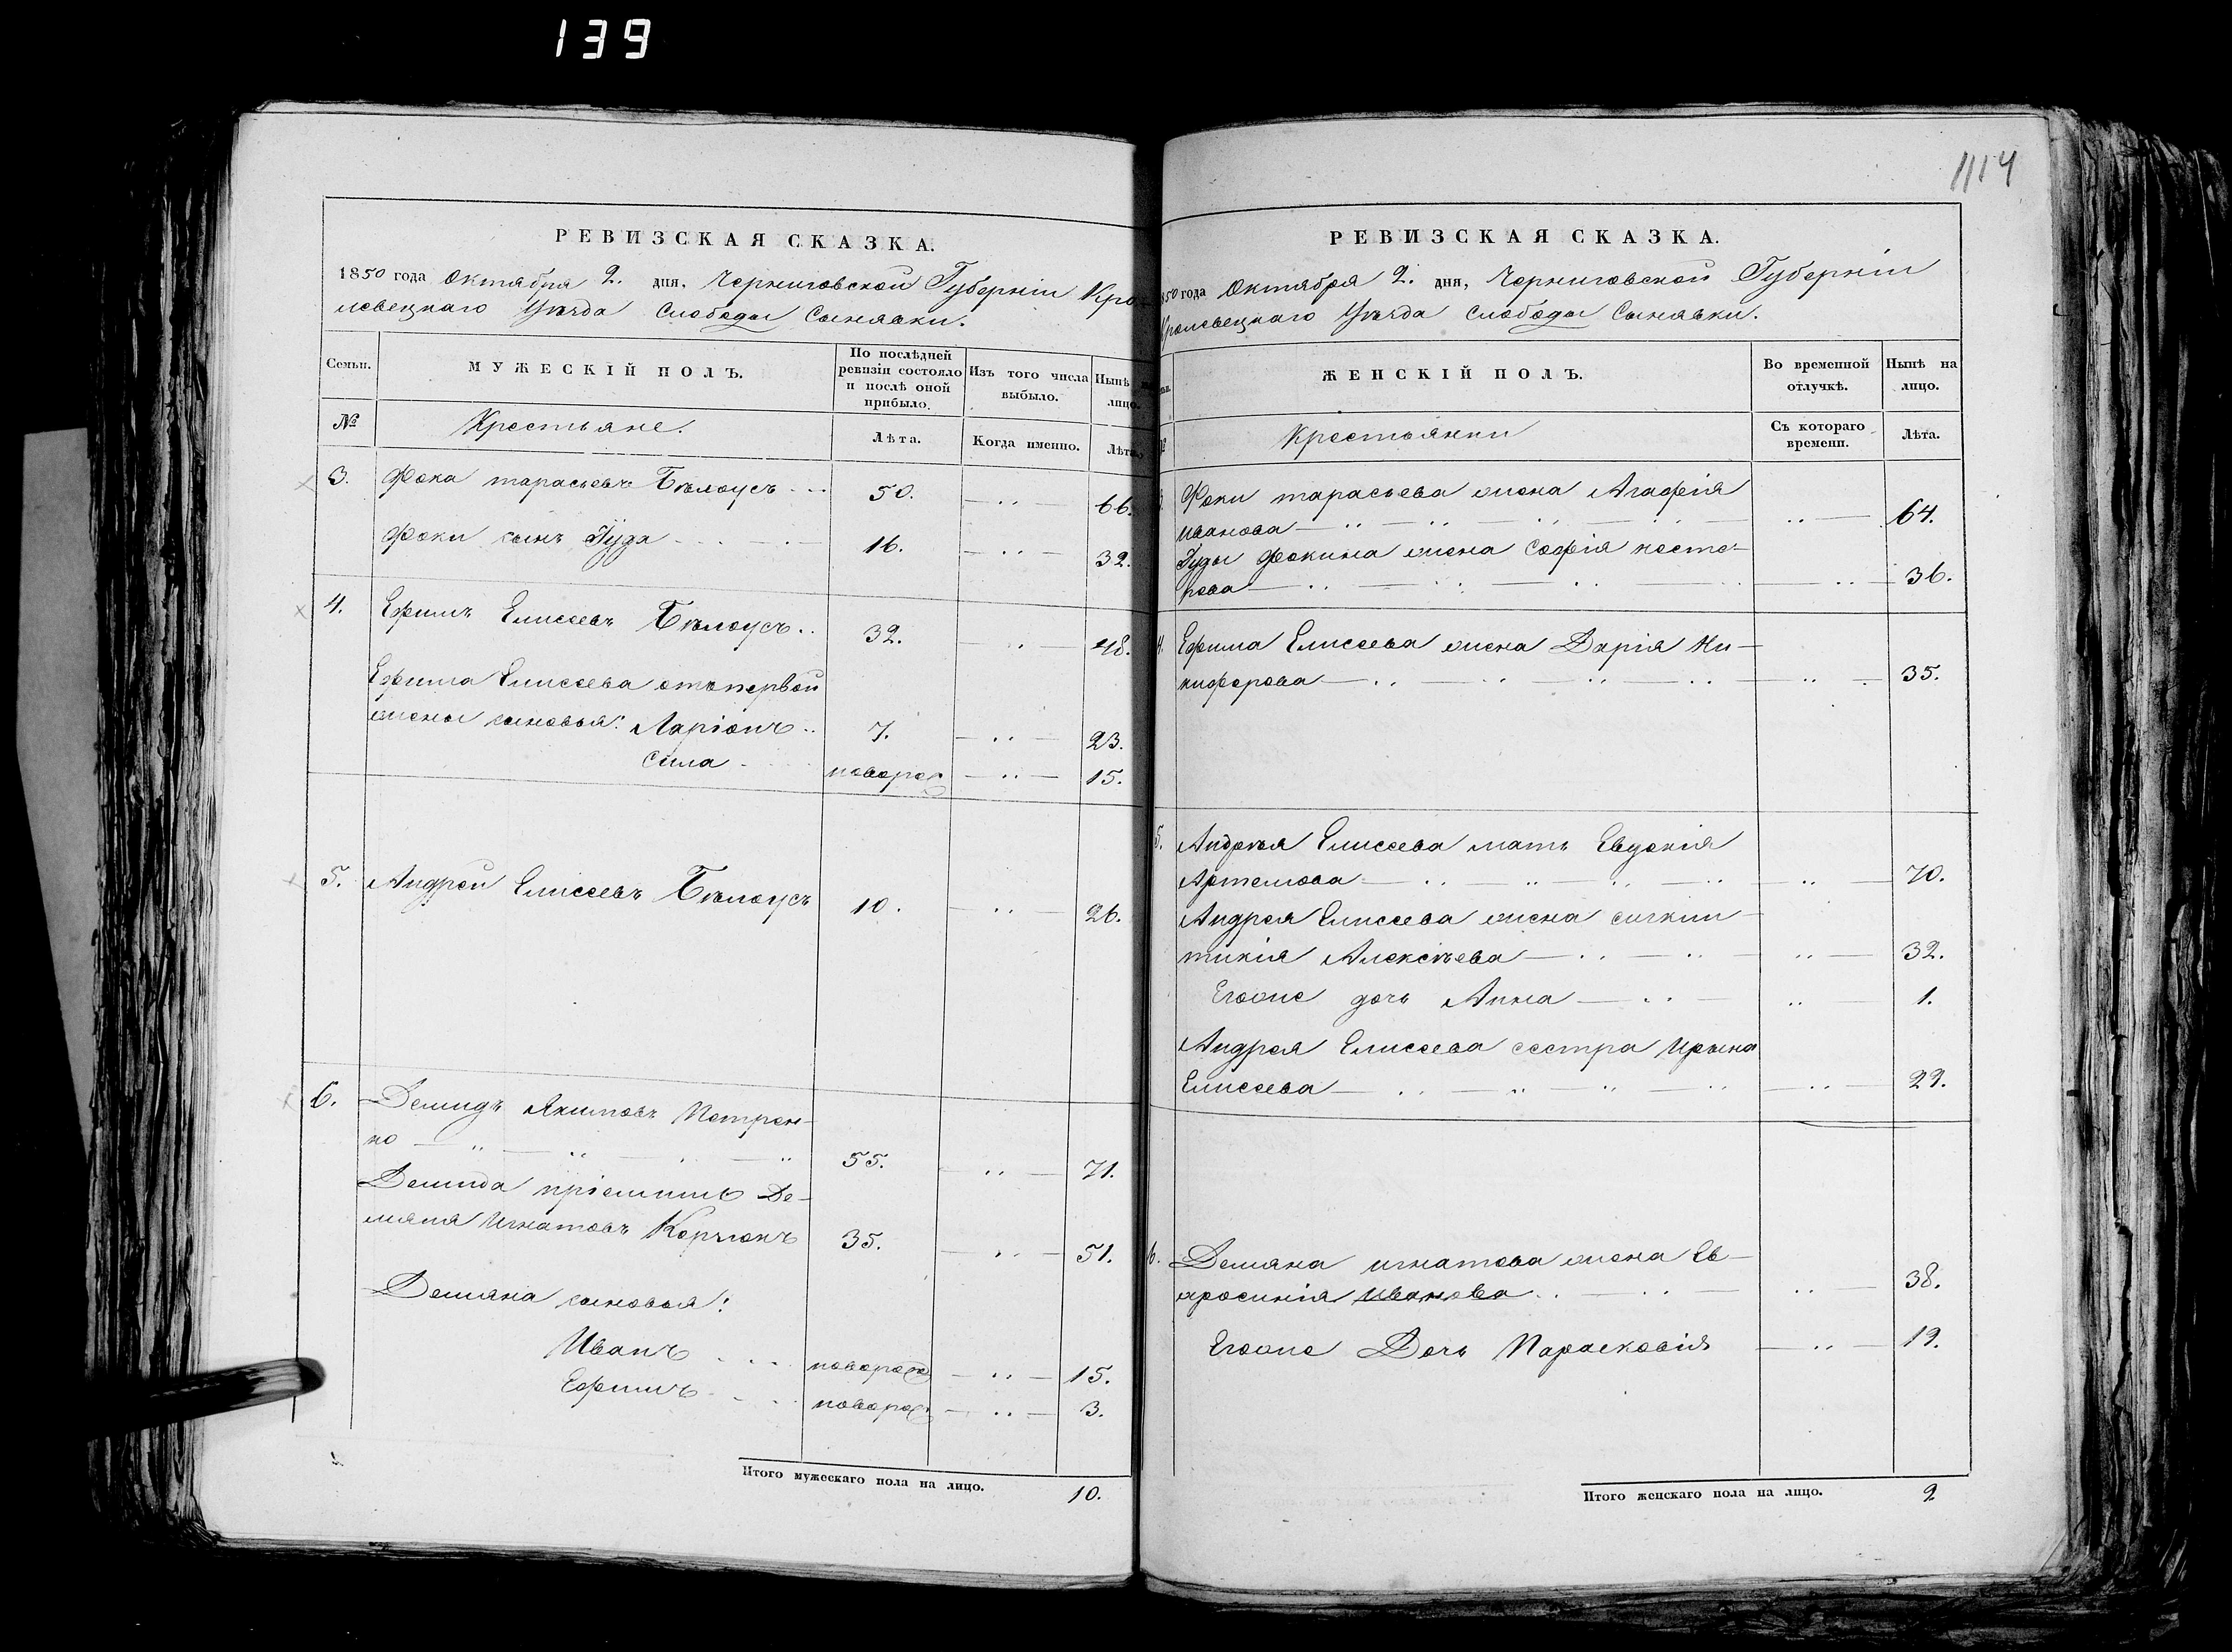 139
1114
РЕВИЗСКАЯ СКАЗКА.
1850 года Октября 2. дня, Черниговской Губерніи Кро-
левецкаго Уѣзда Слободы Сынявки.
Семьи.
МУЖЕСКІЙ ПОЛЪ.
По послѣдней ревизіи состояло и послѣ оной прибыло.
Изъ того числа выбыло.
Нынѣ на лицо.
№
Крестьяне.
Лѣта.
Когда именно.
Лѣта.
3. Фока тарасьевъ Бѣлоусъ 50. 66.
Фоки сынъ Іуда 16. 32.
4. Ефимъ Елисеевъ Бѣлоусъ 32. 48.
Ефима Елисеева отъ первой
жены сыновья: Ларіонъ 7. 23.
Сила новорож 15.
5. Андрей Елисеевъ Бѣлоусъ 10. 26.
6. Демидъ Якимовъ Петрен-
ко 55. 71.
Демида пріемишъ Де-
мянъ Игнатовъ 35. 51.
Демяна сыновья:
Иванъ новорож 15.
Ефимъ новорож 3.
Итого мужескаго пола на лицо. 10.
РЕВИЗСКАЯ СКАЗКА.
1850 года Октября 2. дня, Черниговской Губерніи
Кролевецкаго Уѣзда Слободы Сынявки.
ЖЕНСКІЙ ПОЛЪ.
Во временной отлучкѣ.
Нынѣ на лицо.
№
Крестьянки
Съ котораго времени.
Лѣта.
3. Фоки тарасьева жена Агафія
иванова 64.
Іуды Фокина жена Софія несте-
рова 36.
4. Ефима Елисеева жена Дарія Ни-
кифорова 35.
5. Андрѣя Елисеева мать Евдокія
Артемова 70.
Андрея Елисеева жена
Алексѣева 32.
Егоже дочь Анна 1.
Андрея Елисеева сестра Ирына
Елисеева 29.
6. Демяна игнатова жена Ев-
фросинія Иванова 38.
Егоже Дочь Парасковія 19.
Итого женскаго пола на лицо. 9.